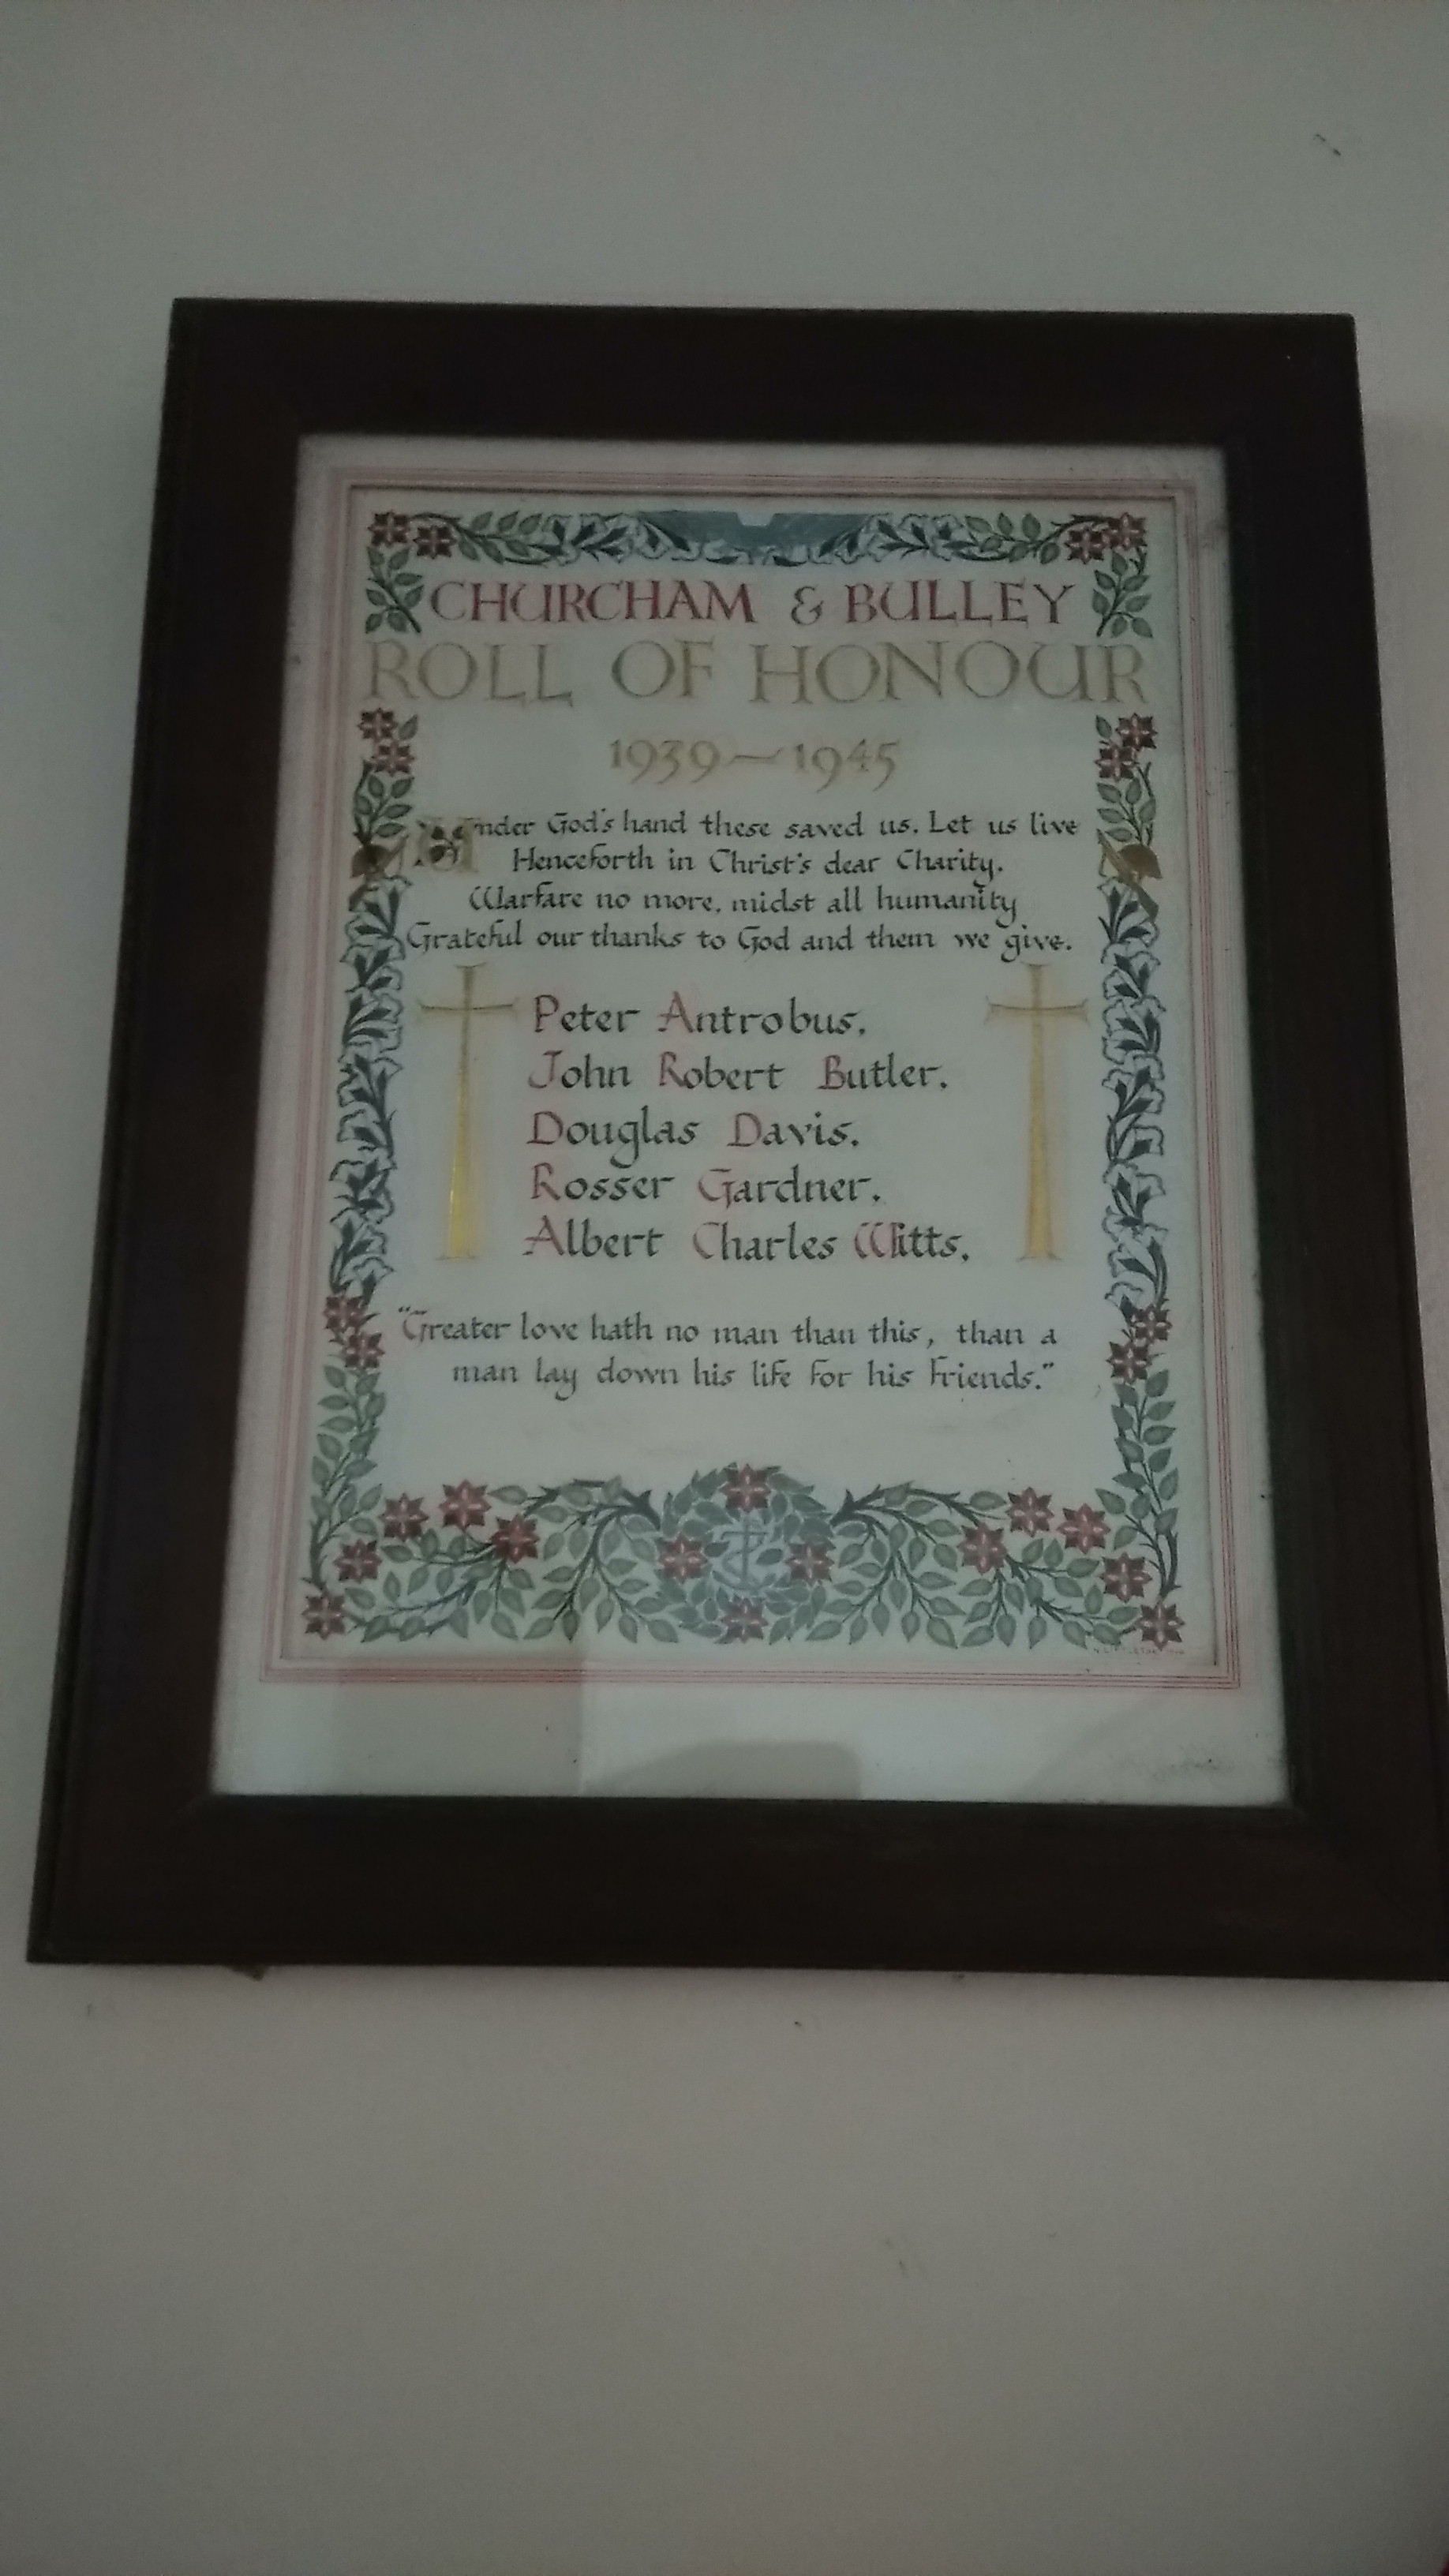 CHURCHAM & BULLEY
ROLL OF HONOUR
1939–1945
Under God's hand these saved us. Let us live
Henceforth in Christ's dear Charity.
Warfare no more, midst all humanity
Grateful our thanks to God and them we give.
Peter Antrobus.
John Robert Butler.
Douglas Davis.
Rosser Gardner.
Albert Charles Witts.
"Greater love hath no man than this, than a
man lay down his life for his friends."